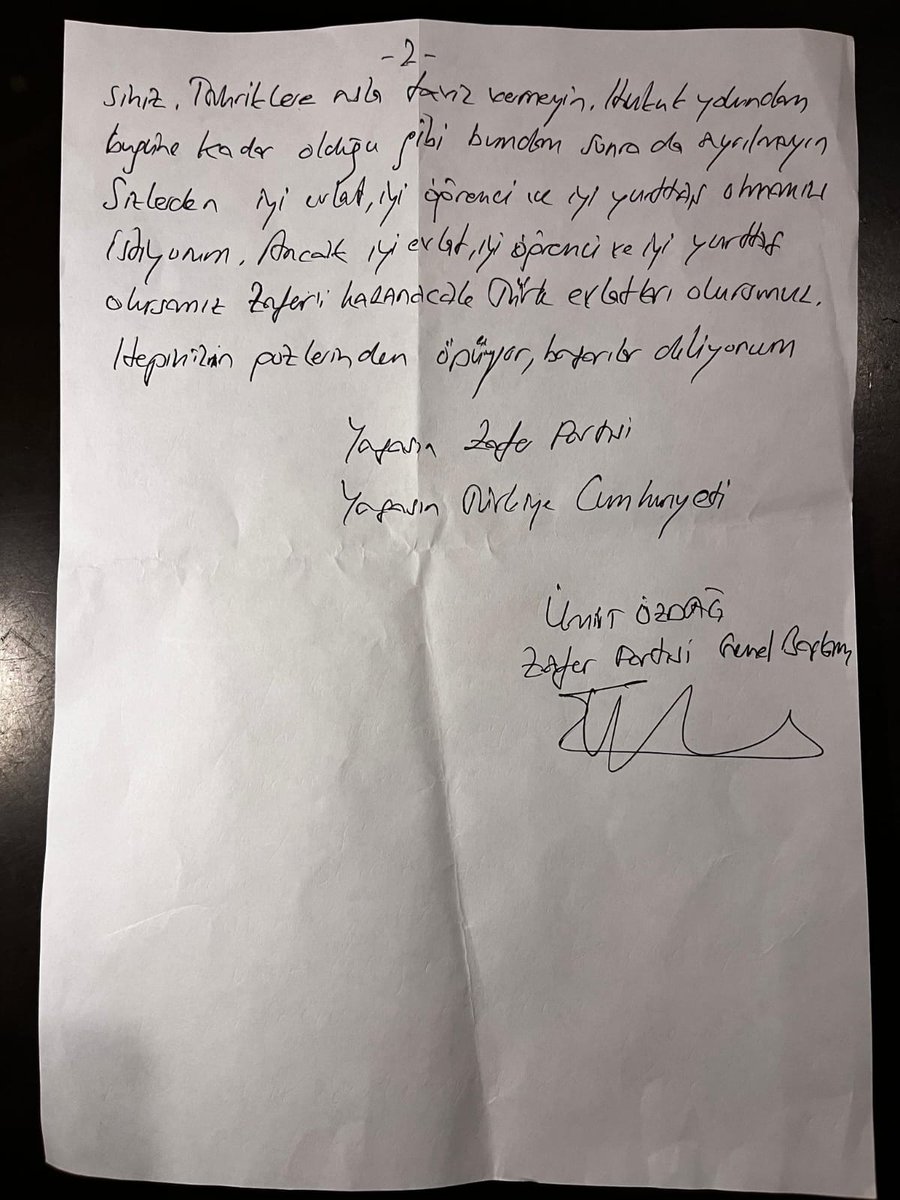 -2-
siniz. Tahriklere asla taviz vermeyin. Hukuk yolundan
bugüne kadar olduğu gibi bundan sonra da ayrılmayın
Sizlerden iyi evlat, iyi öğrenci ve iyi yurttaş olmanızı
istiyorum. Ancak iyi evlat, iyi öğrenci ve iyi yurttaş
olursanız Zafer'i kazanacak Türk evlatları olursunuz.
Hepinizin gözlerinden öpüyor, başarılar diliyorum
Yaşasın Zafer Partisi
Yaşasın Türkiye Cumhuriyeti
ÜMİT ÖZDAĞ
Zafer Partisi Genel Başkanı